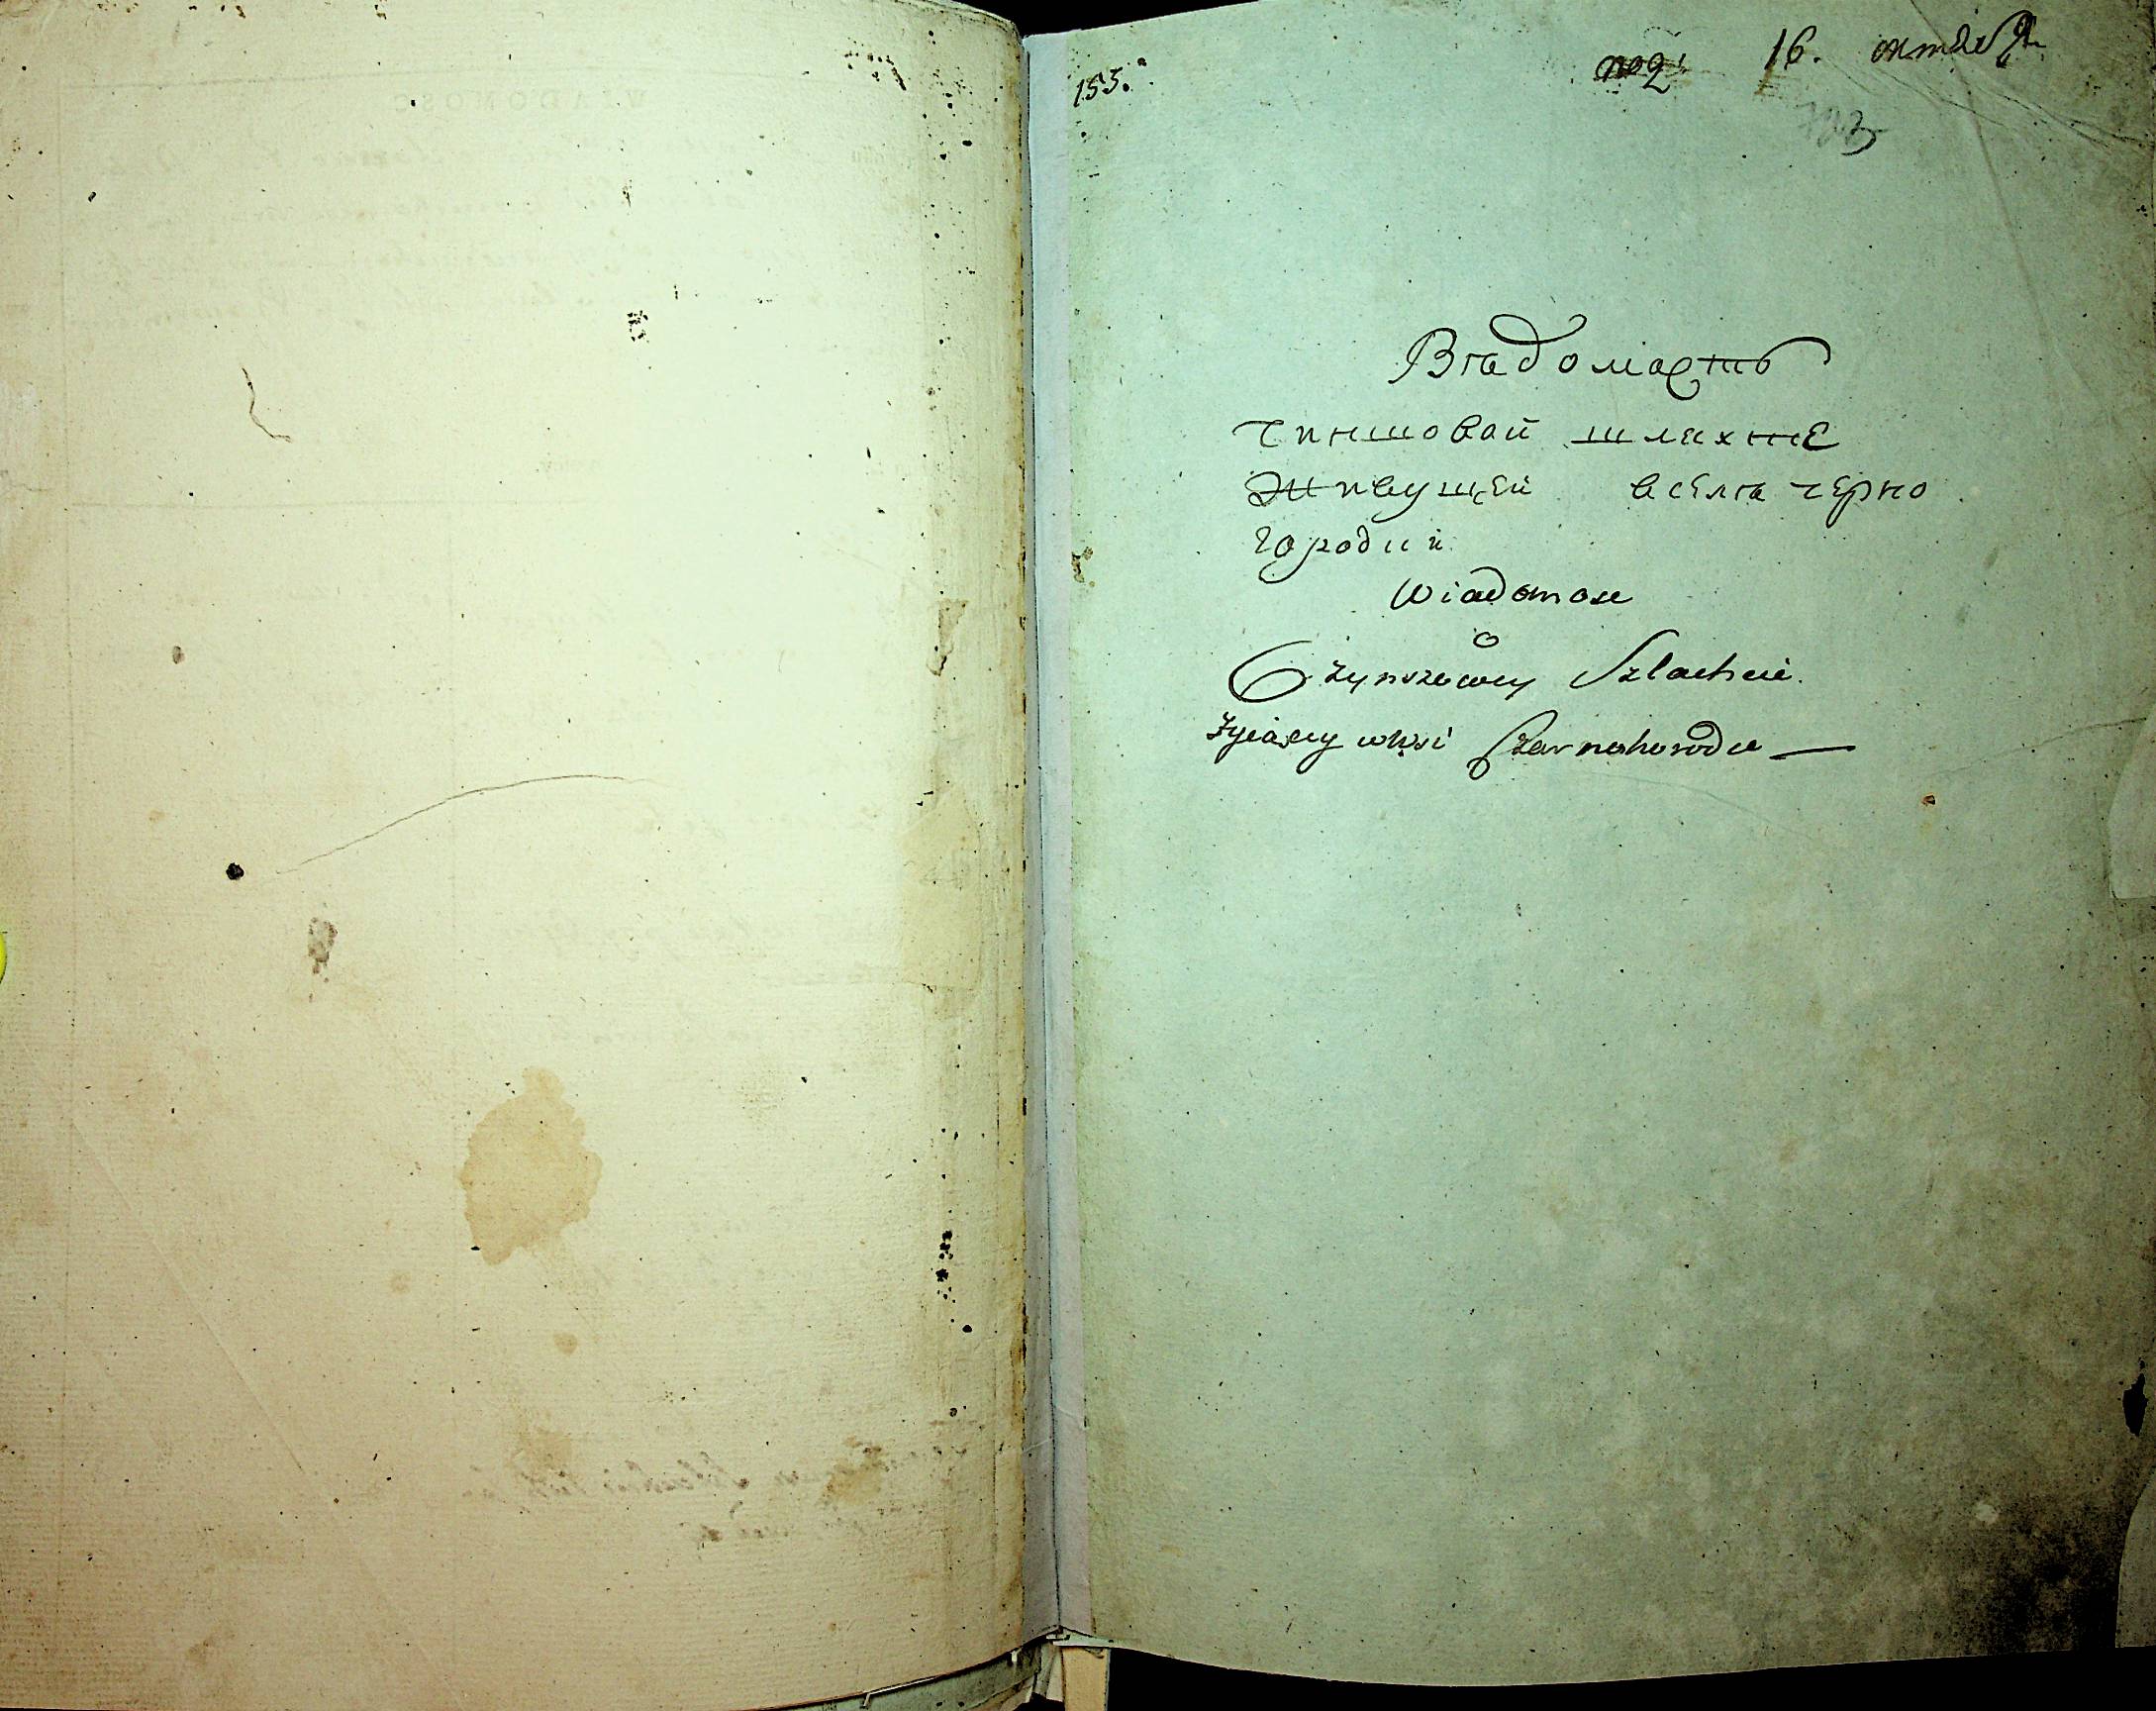 155.
16. октября
Вѣдомасть
чиншовай шляхте
Живущей вселѣ черно
городци
Wiadomosc
o
Czynszowey Szlachcie.
Zyiącey whsi Czarnohorodce